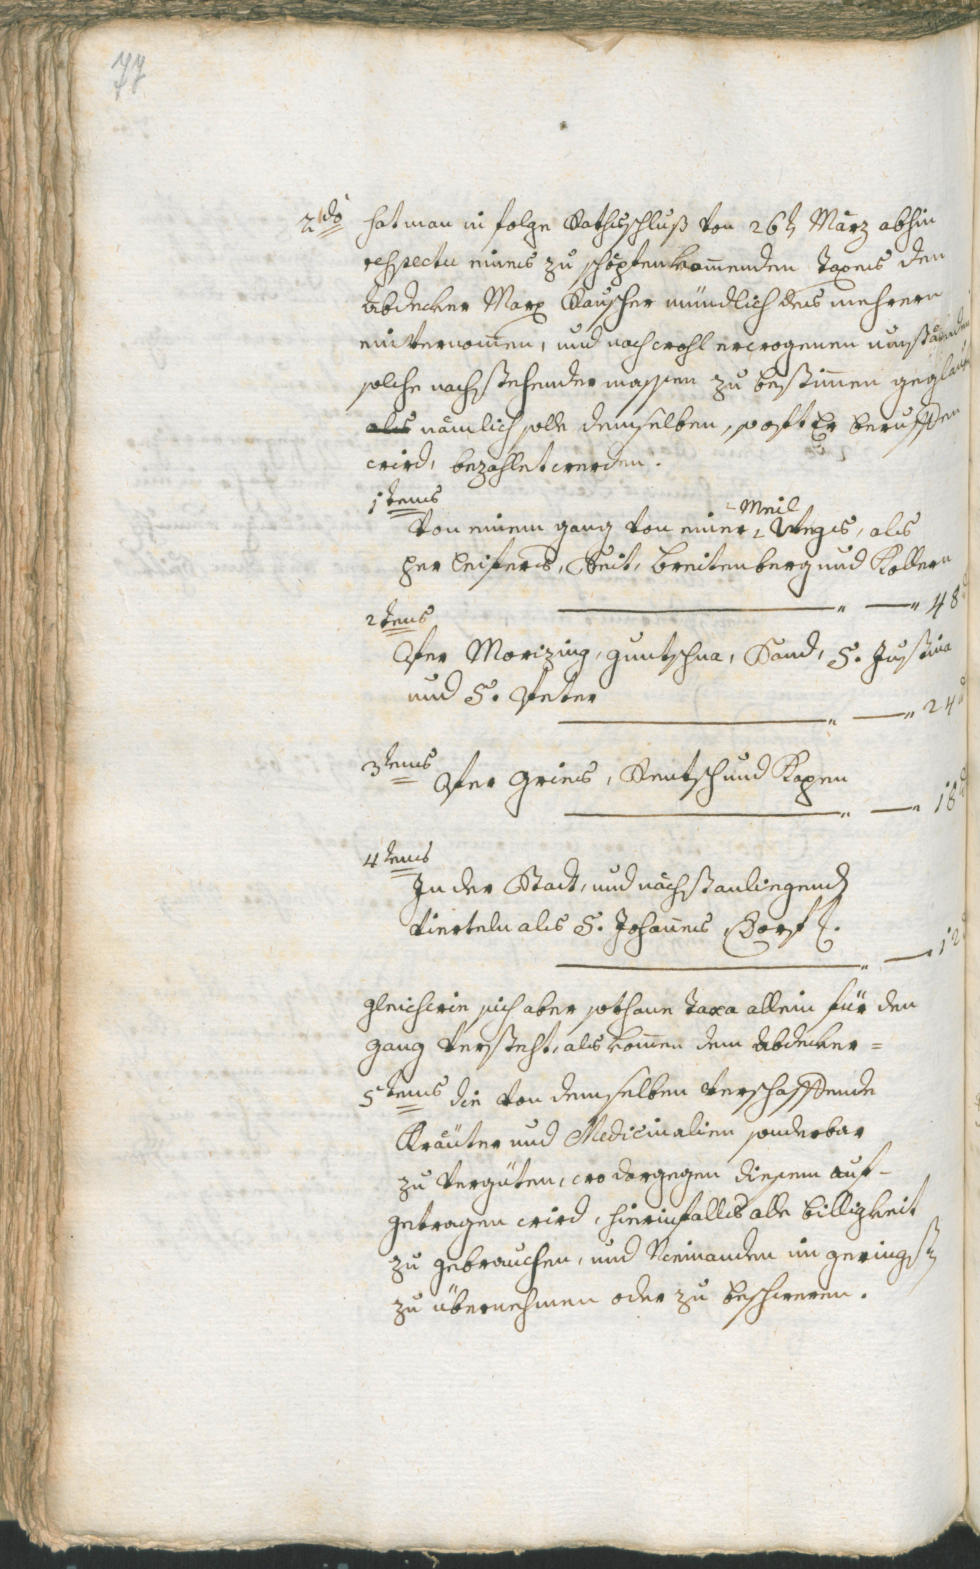 77
2do hat man in folge Rathsschluß von 26t März abhin
respectu eines zu schöpfen kommenden Taxens den
Abdecker Marx Rauscher mündlich des mehrern
einvernomen, und nach wohl erwogenen umständen
solche nachstehender massen zu bestimen geglaubt
als nämlich solle demselben, so oft Er beruffen
wird, bezahlet werden.
1tens
Meil
von einem gang von einer Wegs, als
per Leifers, Seit, Breitenberg und Kollern
48
2tens
Per Morizing, guntschna, Sand, S. Justina
und S. Peter
24
3tens Per Gries, Rentsch und Kapen
18
4tens
In der Stadt, und nächst anliegend
Vierteln als S. Johannes Dorf
12
gleichwie sich aber sothane Taxa allein für den
gang versteht, als komen dem Abdecker =
5tens die von demselben verschaffende
Kräuter und Medicinalien sonderbar
zu vergüten, wo dargegen diesem auf-
getragen wird, hierinfalls alle billigkeit
zu gebrauchen, und Niemanden im geringst
zu übernehmen oder zu beschweren.